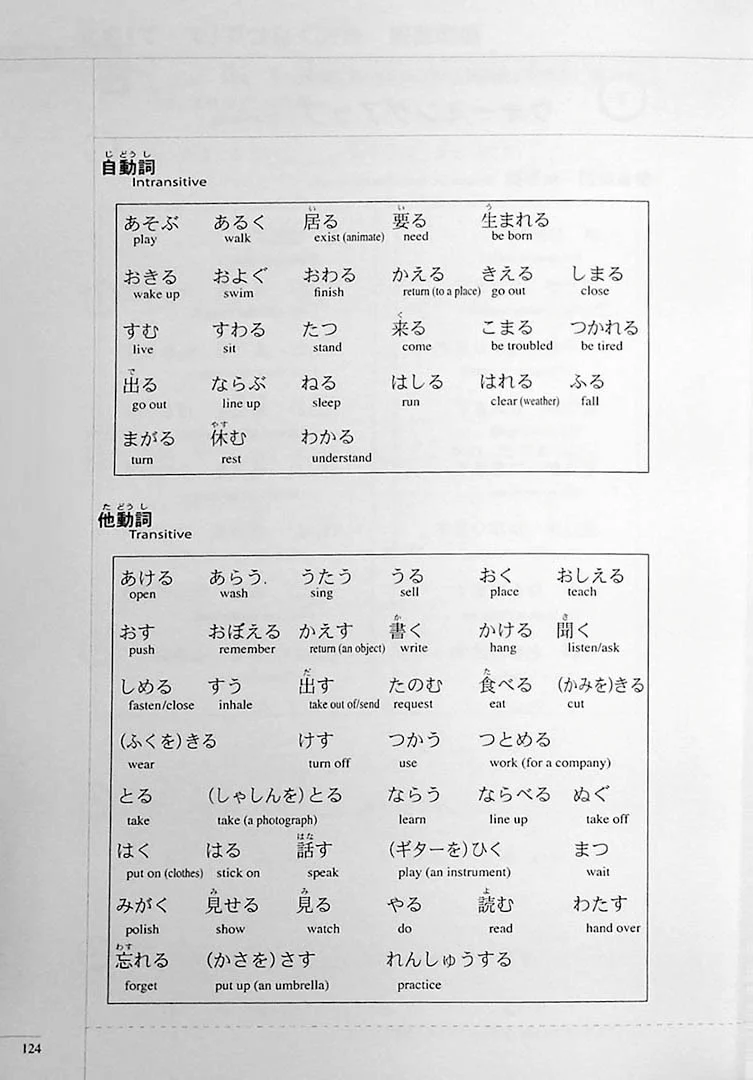 じ どう し
自動詞
Intransitive
い い う
あそぶ あるく 居る 要る 生まれる
play walk exist (animate) need be born
おきる およぐ おわる かえる きえる しまる
wake up swim finish return (to a place) go out close
く
すむ すわる たつ 来る こまる つかれる
live sit stand come be troubled be tired
で
出る ならぶ ねる はしる はれる ふる
go out line up sleep run clear (weather) fall
やす
まがる 休む わかる
turn rest understand
た どう し
他動詞
Transitive
あける あらう. うたう うる おく おしえる
open wash sing sell place teach
か き
おす おぼえる かえす 書く かける 聞く
push remember return (an object) write hang listen/ask
だ た
しめる すう 出す たのむ 食べる (かみを)きる
fasten/close inhale take out of/send request eat cut
(ふくを)きる けす つかう つとめる
wear turn off use work (for a company)
とる (しゃしんを)とる ならう ならべる ぬぐ
take take (a photograph) learn line up take off
はな
はく はる 話す (ギターを)ひく まつ
put on (clothes) stick on speak play (an instrument) wait
み み よ
みがく 見せる 見る やる 読む わたす
polish show watch do read hand over
わす
忘れる (かさを)さす れんしゅうする
forget put up (an umbrella) practice
124